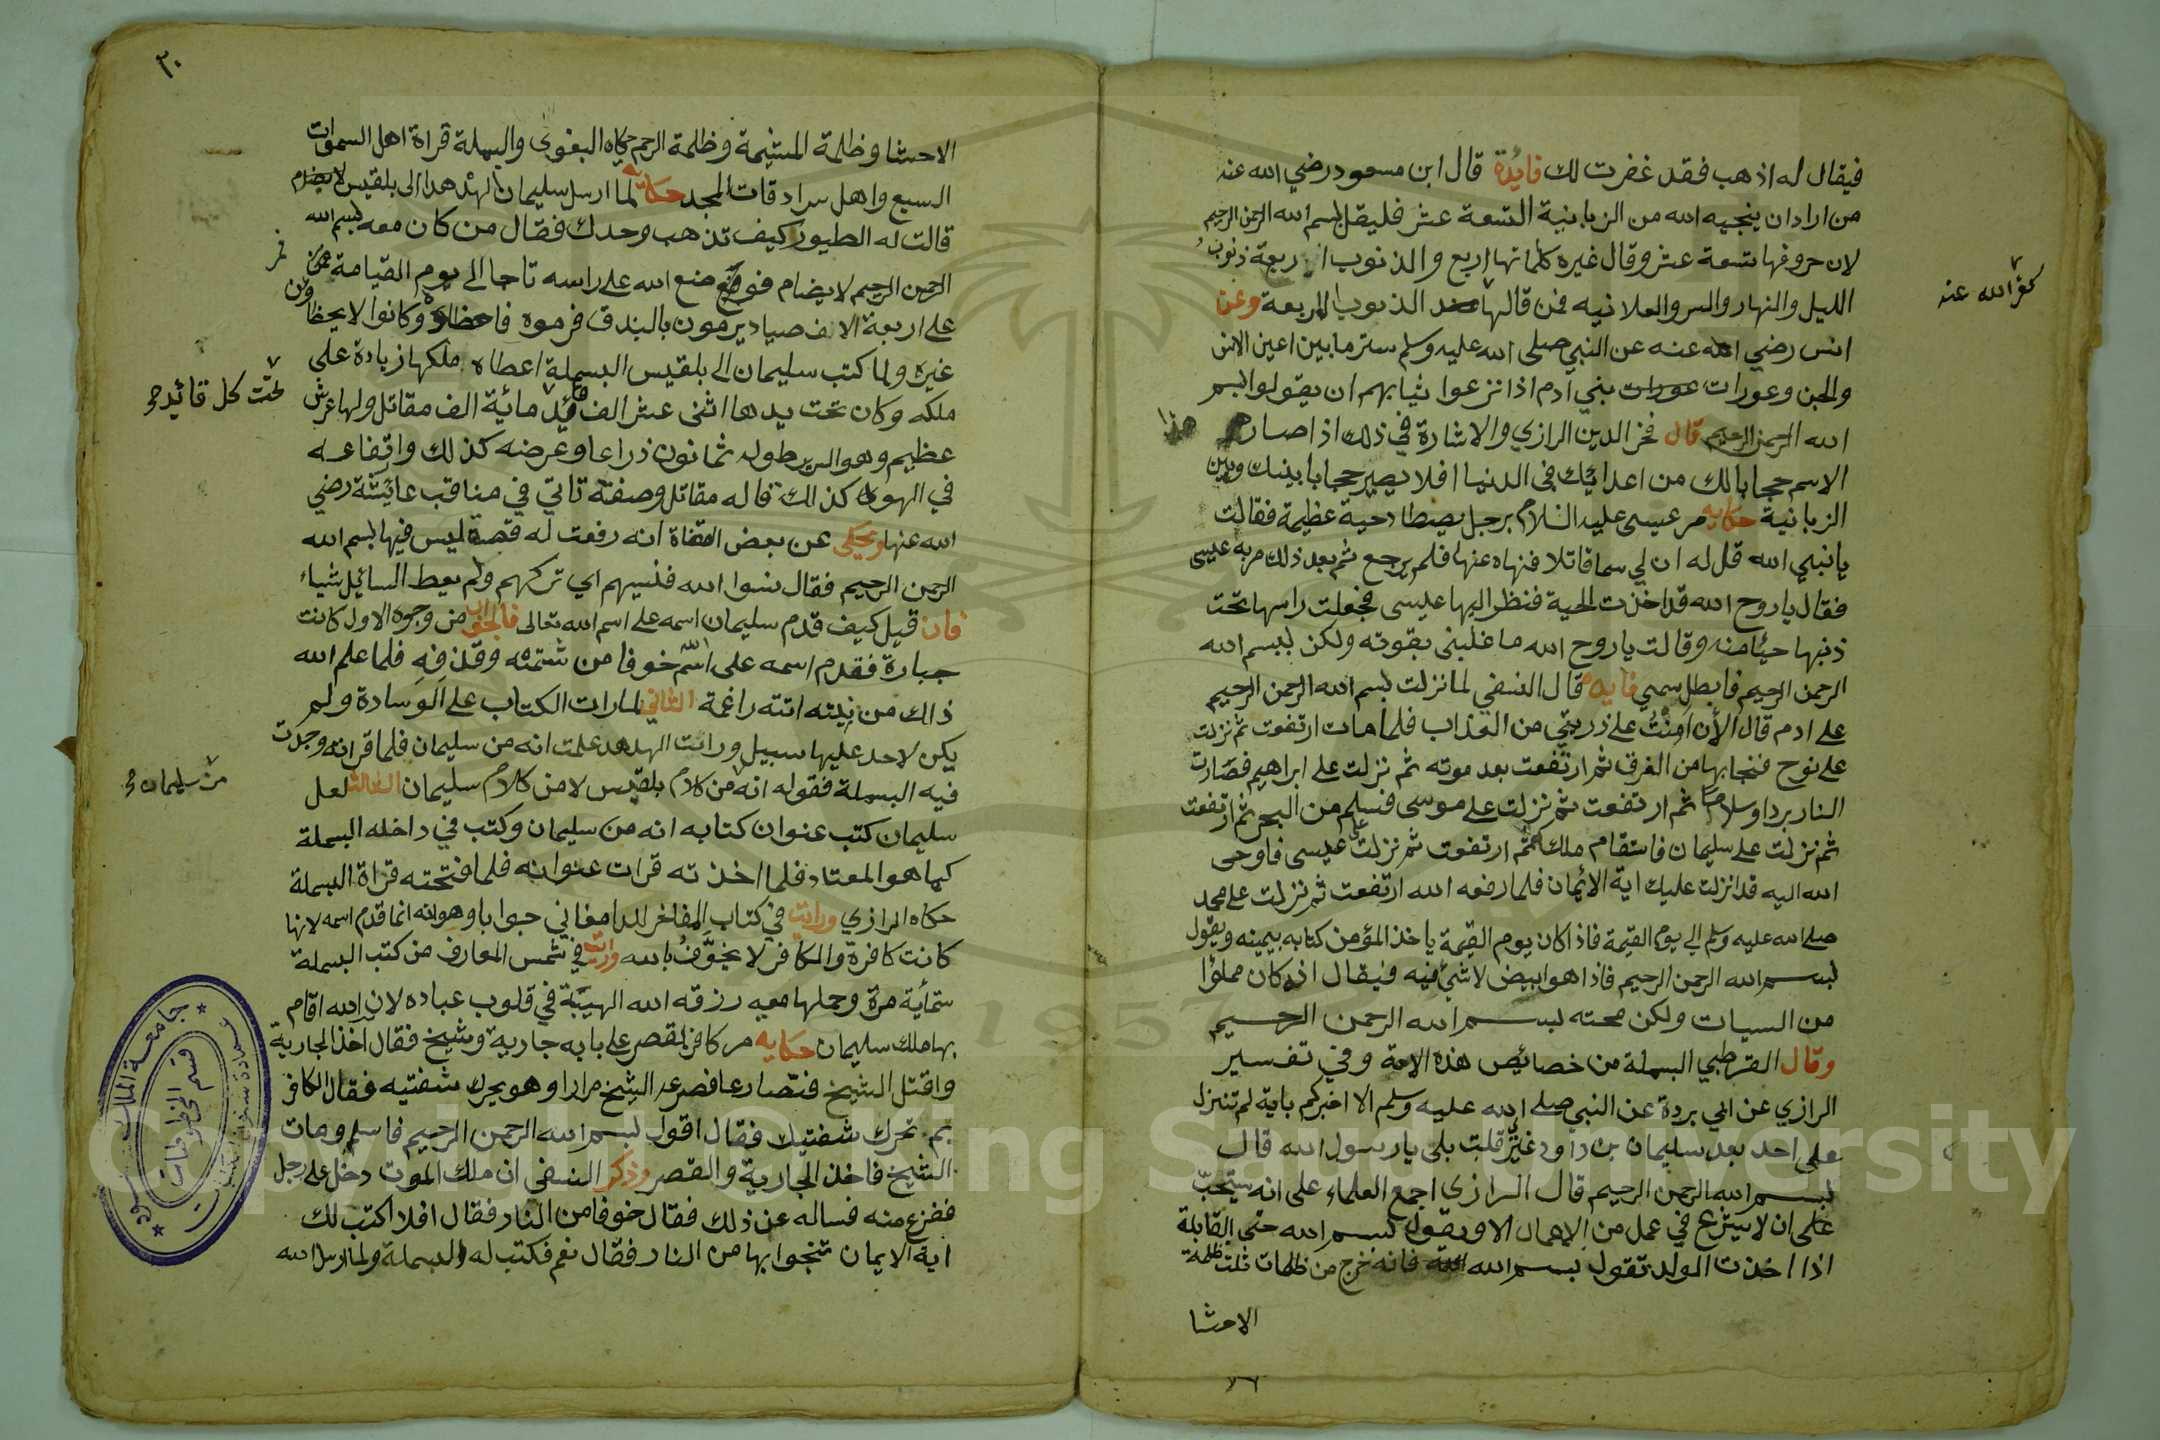 فيقال له اذهب فقد غفرت لك فايدة قال ابن مسعود رضي الله عنه
من اراد ان ينجيه الله من الزبانية التسعة عشر فليقل بسم الله الرحمن الرحيم
لان حروفها تسعة عشر وقال غيره كلماتها اربع والذنوب اربعة ذنوب
الليل والنهار والسر والعلانيه فمن قالها الذنوب الاربعة وعن
كفر الله عنه
انس رضي الله عنه عن النبي صلى الله عليه وسلم ستر مابين اعين الانس
والجن وعورات عورات بني ادم اذا نزعوا ثيابهم ان يقولوا بسم
الله الرحمن الرحيم قال فخر الدين الرازي والاشارة في ذلك اذا صار هذا
الاسم حجابا لك من اعدائك في الدنيا افلا يصير حجابا بينك وبين
الزبانية حكايه مر عيسى عليه السلام برجل يصطاد حية عظيمة فقالت
يا نبي الله قل له ان لي سما قاتلا فنهاه عنها فلم يرجع ثم بعد ذلك مر به عيسى
فقال يا روح الله قد اخذت الحية فنظر اليها عيسى فجعلت راسها تحت
ذنبها حيئا منه وقالت يا روح الله ما غلبني بقوته ولكن ببسم الله
الرحمن الرحيم فابطل سمي فايده قال النسفي لما نزلت بسم الله الرحمن الرحيم
على ادم قال الأن امنت على ذريتي من العذاب فلما مات ارتفعت ثم نزلت
على نوح فنجا بها من الغرق ثم ارتفعت بعد موته ثم نزلت على ابراهيم فصارت
النار بردا وسلاما ثم ارتفعت ثم نزلت على موسى فسلم من البحر ثم ارتفعت
ثم نزلت على سليمان فاستقام ملكه ثم ارتفعت ثم نزلت على عيسى فاوحى
الله اليه قد انزلت عليك اية الأيمان فلما رفعه الله ارتفعت ثم نزلت على محمد
صلى الله عليه وسلم الى يوم القيمة فاذا كان يوم القيمة ياخذ المؤمن كتابه بيمينه ويقول
بسم الله الرحمن الرحيم فاذا هو ابيض لا شئ فيه فيقال انه كان مملؤا
من السيات ولكن محته بسم الله الرحمن الرحيم
وقال القرطبي البسملة من خصائص هذه الامة وفي تفسير
الرازي عن ابي بردة عن النبي صلى الله عليه وسلم الا اخبركم باية لم تنزل
على احد بعد سليمان بن داود غيري قلت بلى يا رسول الله قال
بسم الله الرحمن الرحيم قال الرازي اجمع العلماء على انه يستحب
على ان لا يشرع في عمل من الاعمال الا ويقول بسم الله حتى القابلة
اذا اخذت الولد تقول بسم الله فانه خرج من ظلمات ثلث ظلمة
الاحشا
الاحشا وظلمة المشيمة وظلمة الرحم حكاه البغوى والبسملة قراة اهل السموات
السبع واهل سرادقات المجد حكاية لما ارسل سليمان الهدهد الى بلقيس
قالت له الطيور كيف تذهب وحدك فقال من كان معه بسم الله
الرحمن الرحيم لا يضام فوضع الله على راسه تاجا الى يوم القيامة
على اربعة الاف صياد يرمون بالبندق فرموه وكانوا لا يخطاون
غيره ولما كتب سليمان الى بلقيس البسملة اعطاه ملكها زيادة على
ملكه وكان تحت يدها اثنى عشر الف قائد مائة الف مقاتل ولها عرش
تحت كل قائد
عظيم وهو السرير طوله ثمانون ذراعا وعرضه كذلك وارتفاعه
في الهوى كذلك قاله مقاتل وصفته تاتي في مناقب عائشة رضي
الله عنها ويحكى عن بعض القضاة انه رفعت له قصة ليس فيها بسم الله
الرحمن الرحيم فقال نسوا الله فنسيهم اي تركهم ولم يعط السائل شياء
فان قيل كيف قدم سليمان اسمه على اسم الله تعالى فالجواب من وجوه الاول كانت
جبارة فقدم اسمه على اسم الله خوفا من شتمه وقذفه فلما علم الله
ذلك من نيته اتته راغمة الثاني لما رات الكتاب على الوسادة ولم
يكن لاحد عليها سبيل ورات الهدهد علمت انه من سليمان فلما قراته وجدت
فيه البسملة فقوله انه من كلام بلقيس لا من كلام سليمان الثالث لعل
من سليمان
سليمان كتب عنوان كتابه انه من سليمان وكتب في داخله البسملة
كما هو المعتاد فلما اخذته قرات عنوانه فلما فتحته قراة البسملة
حكاه الرازي ورايت في كتاب المفاخر للدامغاني جوابا وهو انه انما قدم اسمه لانها
كانت كافرة والكافر لا يخوف بالله ورايت في شمس المعارف من كتب البسملة
ستماية مرة وحملها معه رزقه الله الهيبة في قلوب عباده لان الله اقام
بها ملك سليمان حكايه مر كافر لقصر على بابه جارية وشيخ فقال اخذ الجارية
واقتل الشيخ فتصارعا فصرعه الشيخ مرارا وهو يحرك شفتيه فقال الكافر
بم تحرك شفتيك فقال اقول بسم الله الرحمن الرحيم فاسلم ومات
الشيخ فاخذ الجارية والقصر وذكر النسفي ان ملك الموت دخل على رجل
ففزع منه فساله عن ذلك فقال خوفا من النار فقال افلا اكتب لك
اية الايمان تنجوا بها من النار فقال نعم فكتب له البسملة ولما ارسل الله
٣٠
جامعة الملك سعود
قسم المخطوطات
1957
Copyright © King Saud University